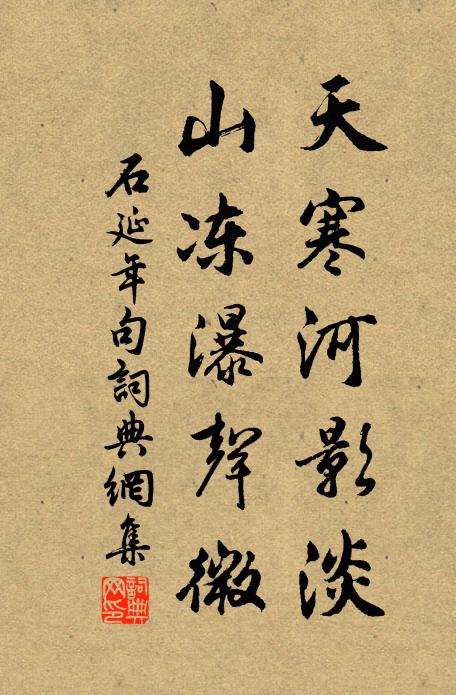 天寒河影淡
山冻瀑聲微
石延年句詞典網集
詞典网印